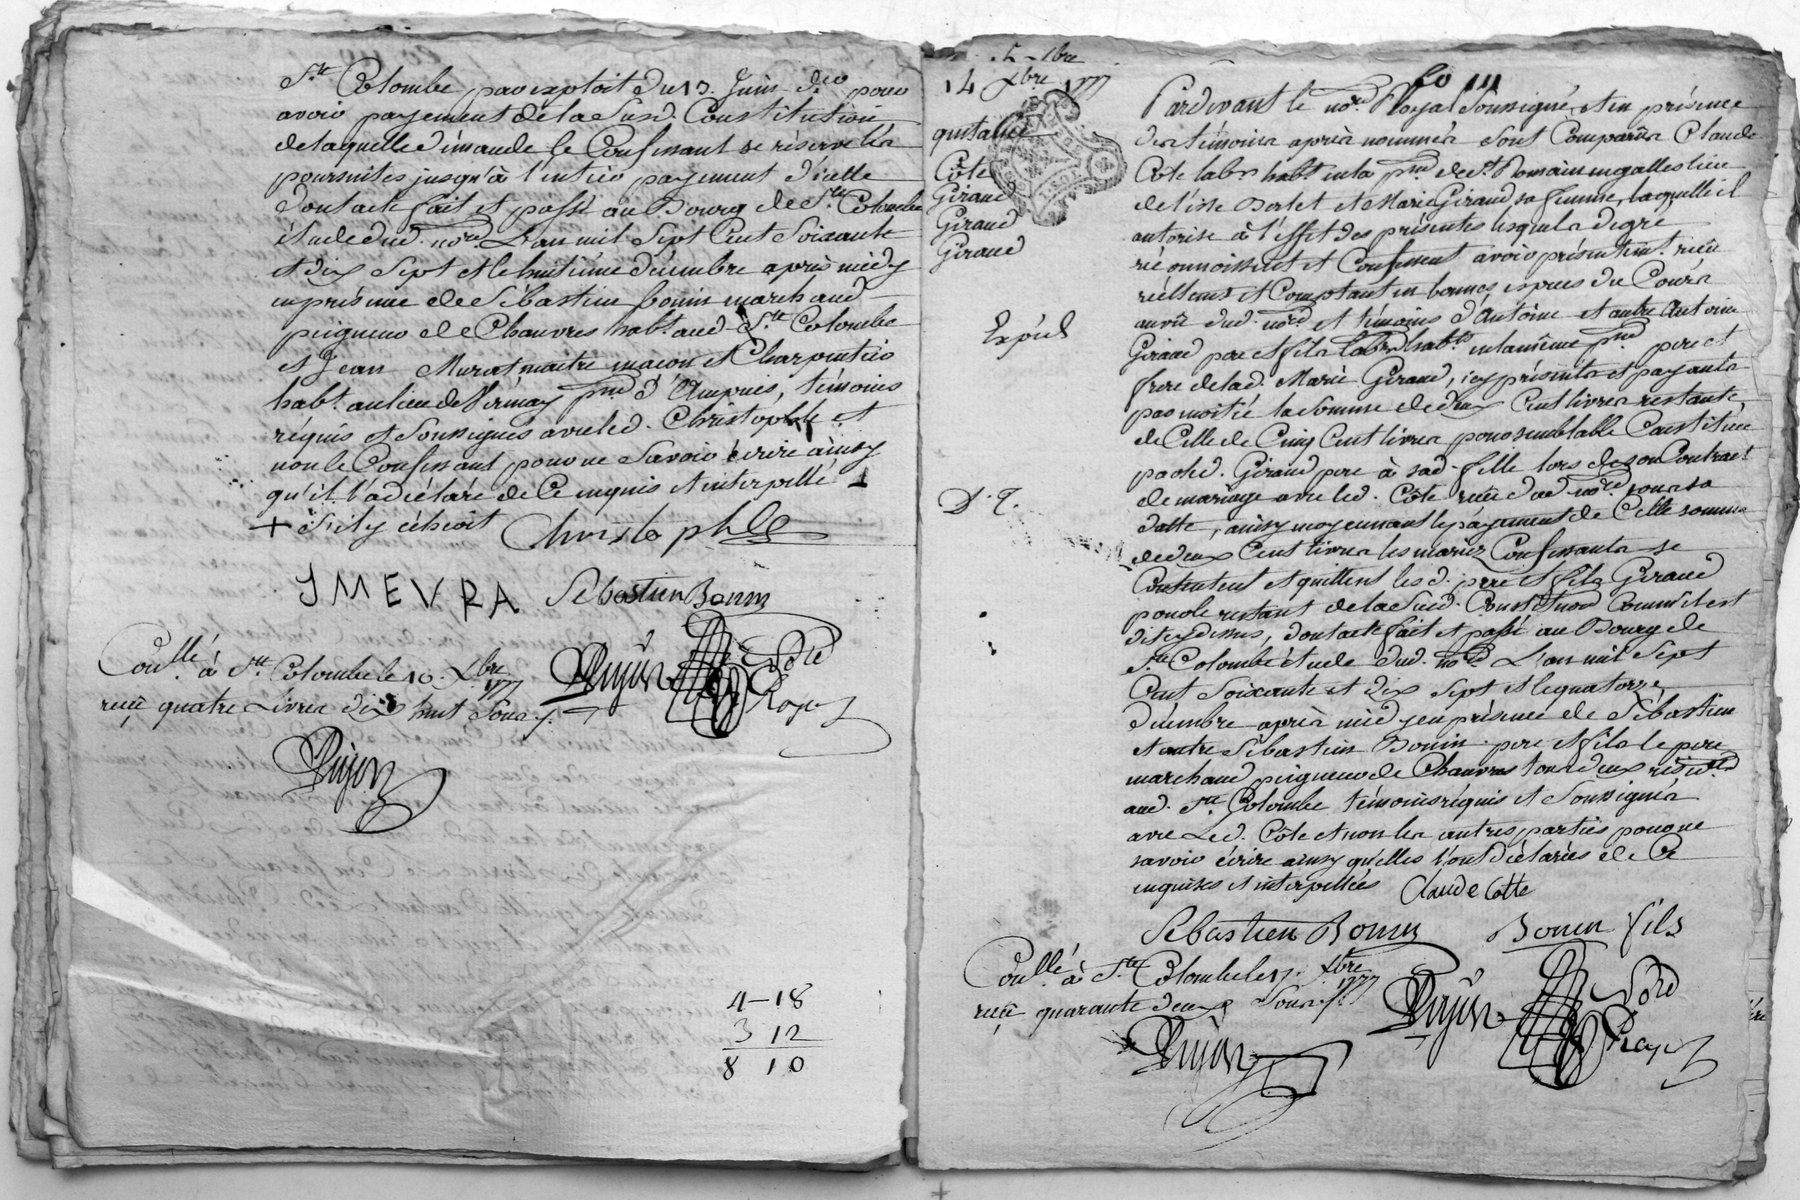 Ste Colombe par exploit du 13. Juin dr. pour
avoir payement de la Susd. Constitution
de laquelle démande le Confessant se réserve les
poursuites jusqu'à l'entier payement d'icelle
Dont acte fait et passé au Bourg de Ste Colombe
étude dud. nore. L'an mil Sept Cent Soixante
et dix Sept et le huitième décembre après midy
en présence de Sébastien bonin marchand
peigneur de Chanvres habt. aud. Ste Colombe
et Jean Murat maitre macon et Charpentier
habt. au lieu de Vérnay psse d'Ampues, témoins
réquis et Soussignés avec led. Christophle et
non le Confessant pour ne Savoir écrire ainsy
qu'il l'a déclaré de Ce enquis et interpellé
+ S'il y échoit Christophle
JMEVRA Sébastien Bonin
Dujon Nore Royal
Conllé. à Ste Colombe le 10. Xbre 1777
reçu quatre Livres dix huit Sous
Dujon
4-18
3 12
8 10
14 Xbre 1777
quitance
Côte
Giraud
Giraud
Giraud
Expéd
D. q.
fo
Pardevant le nore Royal Soussigné, et en présence
des témoins après nommés Sont Comparus Claude
Côte labr. habt. en la psse de St Romain en galles lieu
de l'isle Bartet et Marie Giraud sa femme, laquelle il
autorise à l'effet des présentes lesquels de gré
réconnoissent et Confessent avoir présentemt. reçu
réellemt. et Comptant en bonnes espèces du Cours
au vû dud. nore et témoins d'Antoine et autre Antoine
Giraud pere et fils labrs. habts. en la même psse pere et
frere de lad. Marie Giraud, icy présents et payants
par moitié la Somme de deux Cent livres restante
de Celle de Cinq Cent livres pour semblable Constituée
par led. Giraud pere à sad. fille lors de son Contract
de mariage avec led. Côte reçu dud. nore sous sa
datte, ainsy moyennant le payement de Celle somme
de deux Cent livres les mariés Confessants se
Contentent et quittent lesd. pere et fils Giraud
pour le restant de la Susd. Constitution Comme il est
dit cy dessus, dont acte fait et passé au Bourg de
Ste Colombe étude dud. nore L'an mil Sept
Cent Soixante et dix Sept et le quatorze
décembre après midy en présence de Sébastien
et autre Sébastien Bonin pere et fils le pere
marchand peigneur de Chanvres tous deux résids.
aud. Ste Colombe témoins réquis et Soussignés
avec Led. Côte et non les autres parties pour ne
savoir écrire ainsy qu'elles l'ont déclarées de Ce
enquises et interpellées Claude Cotte
Sébastien Bonin Bonin fils
Conllé. à Ste Colombe le 17. Xbre 1777
reçu quarante deux Sous
Dujon Nore Royal
Dujon